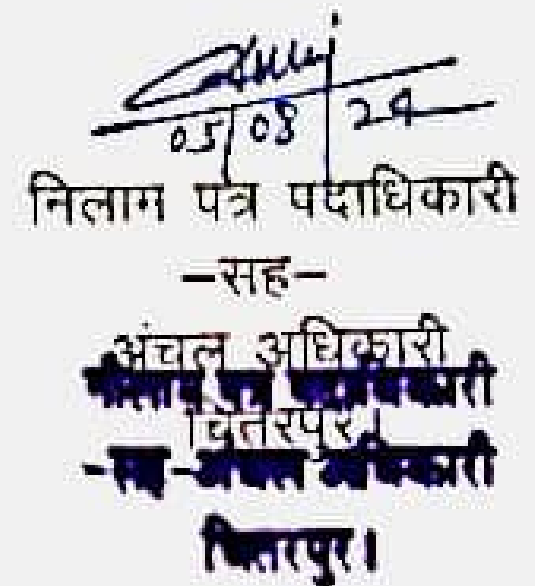 05/08/24
निलाम पत्र पदाधिकारी
-सह-
अंचल अधिकारी
नीलाम पत्र पदाधिकारी
चितरपुर।
-सह-अंचल अधिकारी
चितरपुर।